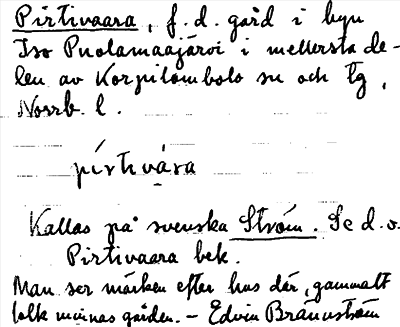 Pirtivaara, f. d. gård i byn
Iso Puolamaajärvi i mellersta de-
len av Korpilombolo sn och tg,
Norrb. l.
pírtivạ̄ra
Kallas på svenska Ström. Se d. o.
Pirtivaara bek.
Man ser märken efter hus där, gammalt
folk minnas gården. – Edvin Brännström